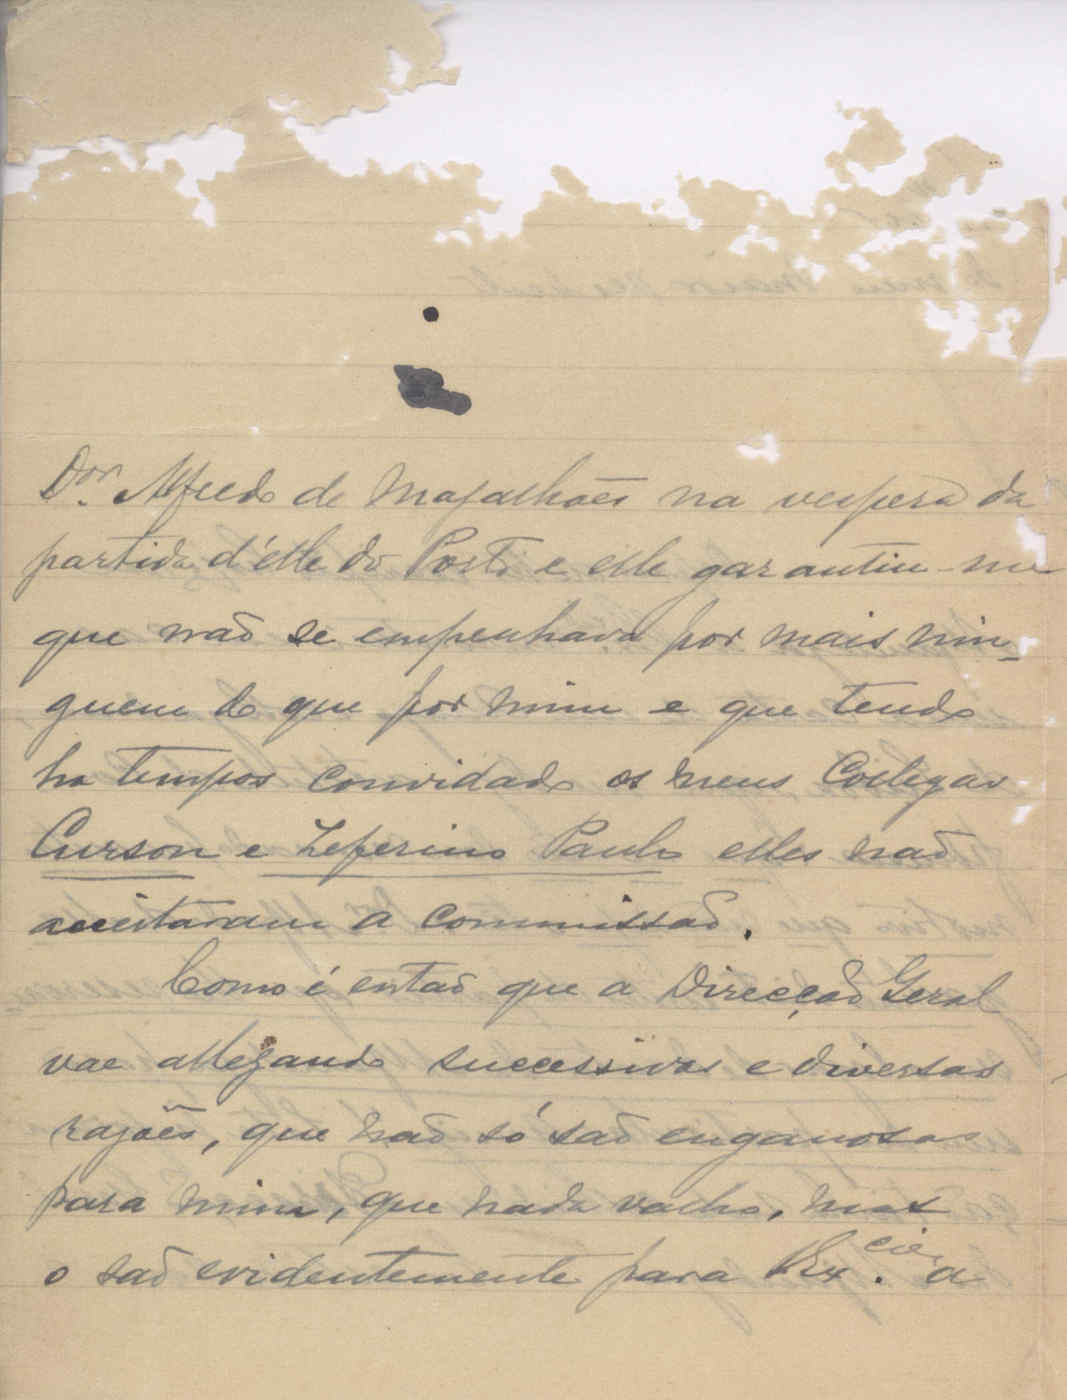 Dor. Alfredo de Magalhães na vespera da
partida d'elle do Porto e elle garantiu-me
que não se empenhava por mais nin-
guem do que por mim e que tendo
ha tempos convidado os meus Collegas
Curson e Zeferino Paulo elles não
acceitaram a commissão.
Como é então que a Direcção Geral
vae allegando successivas e diversas
razões, que não só são enganosas
para mim, que nada valho, mas
o são evidentemente para V. Ex.cia a